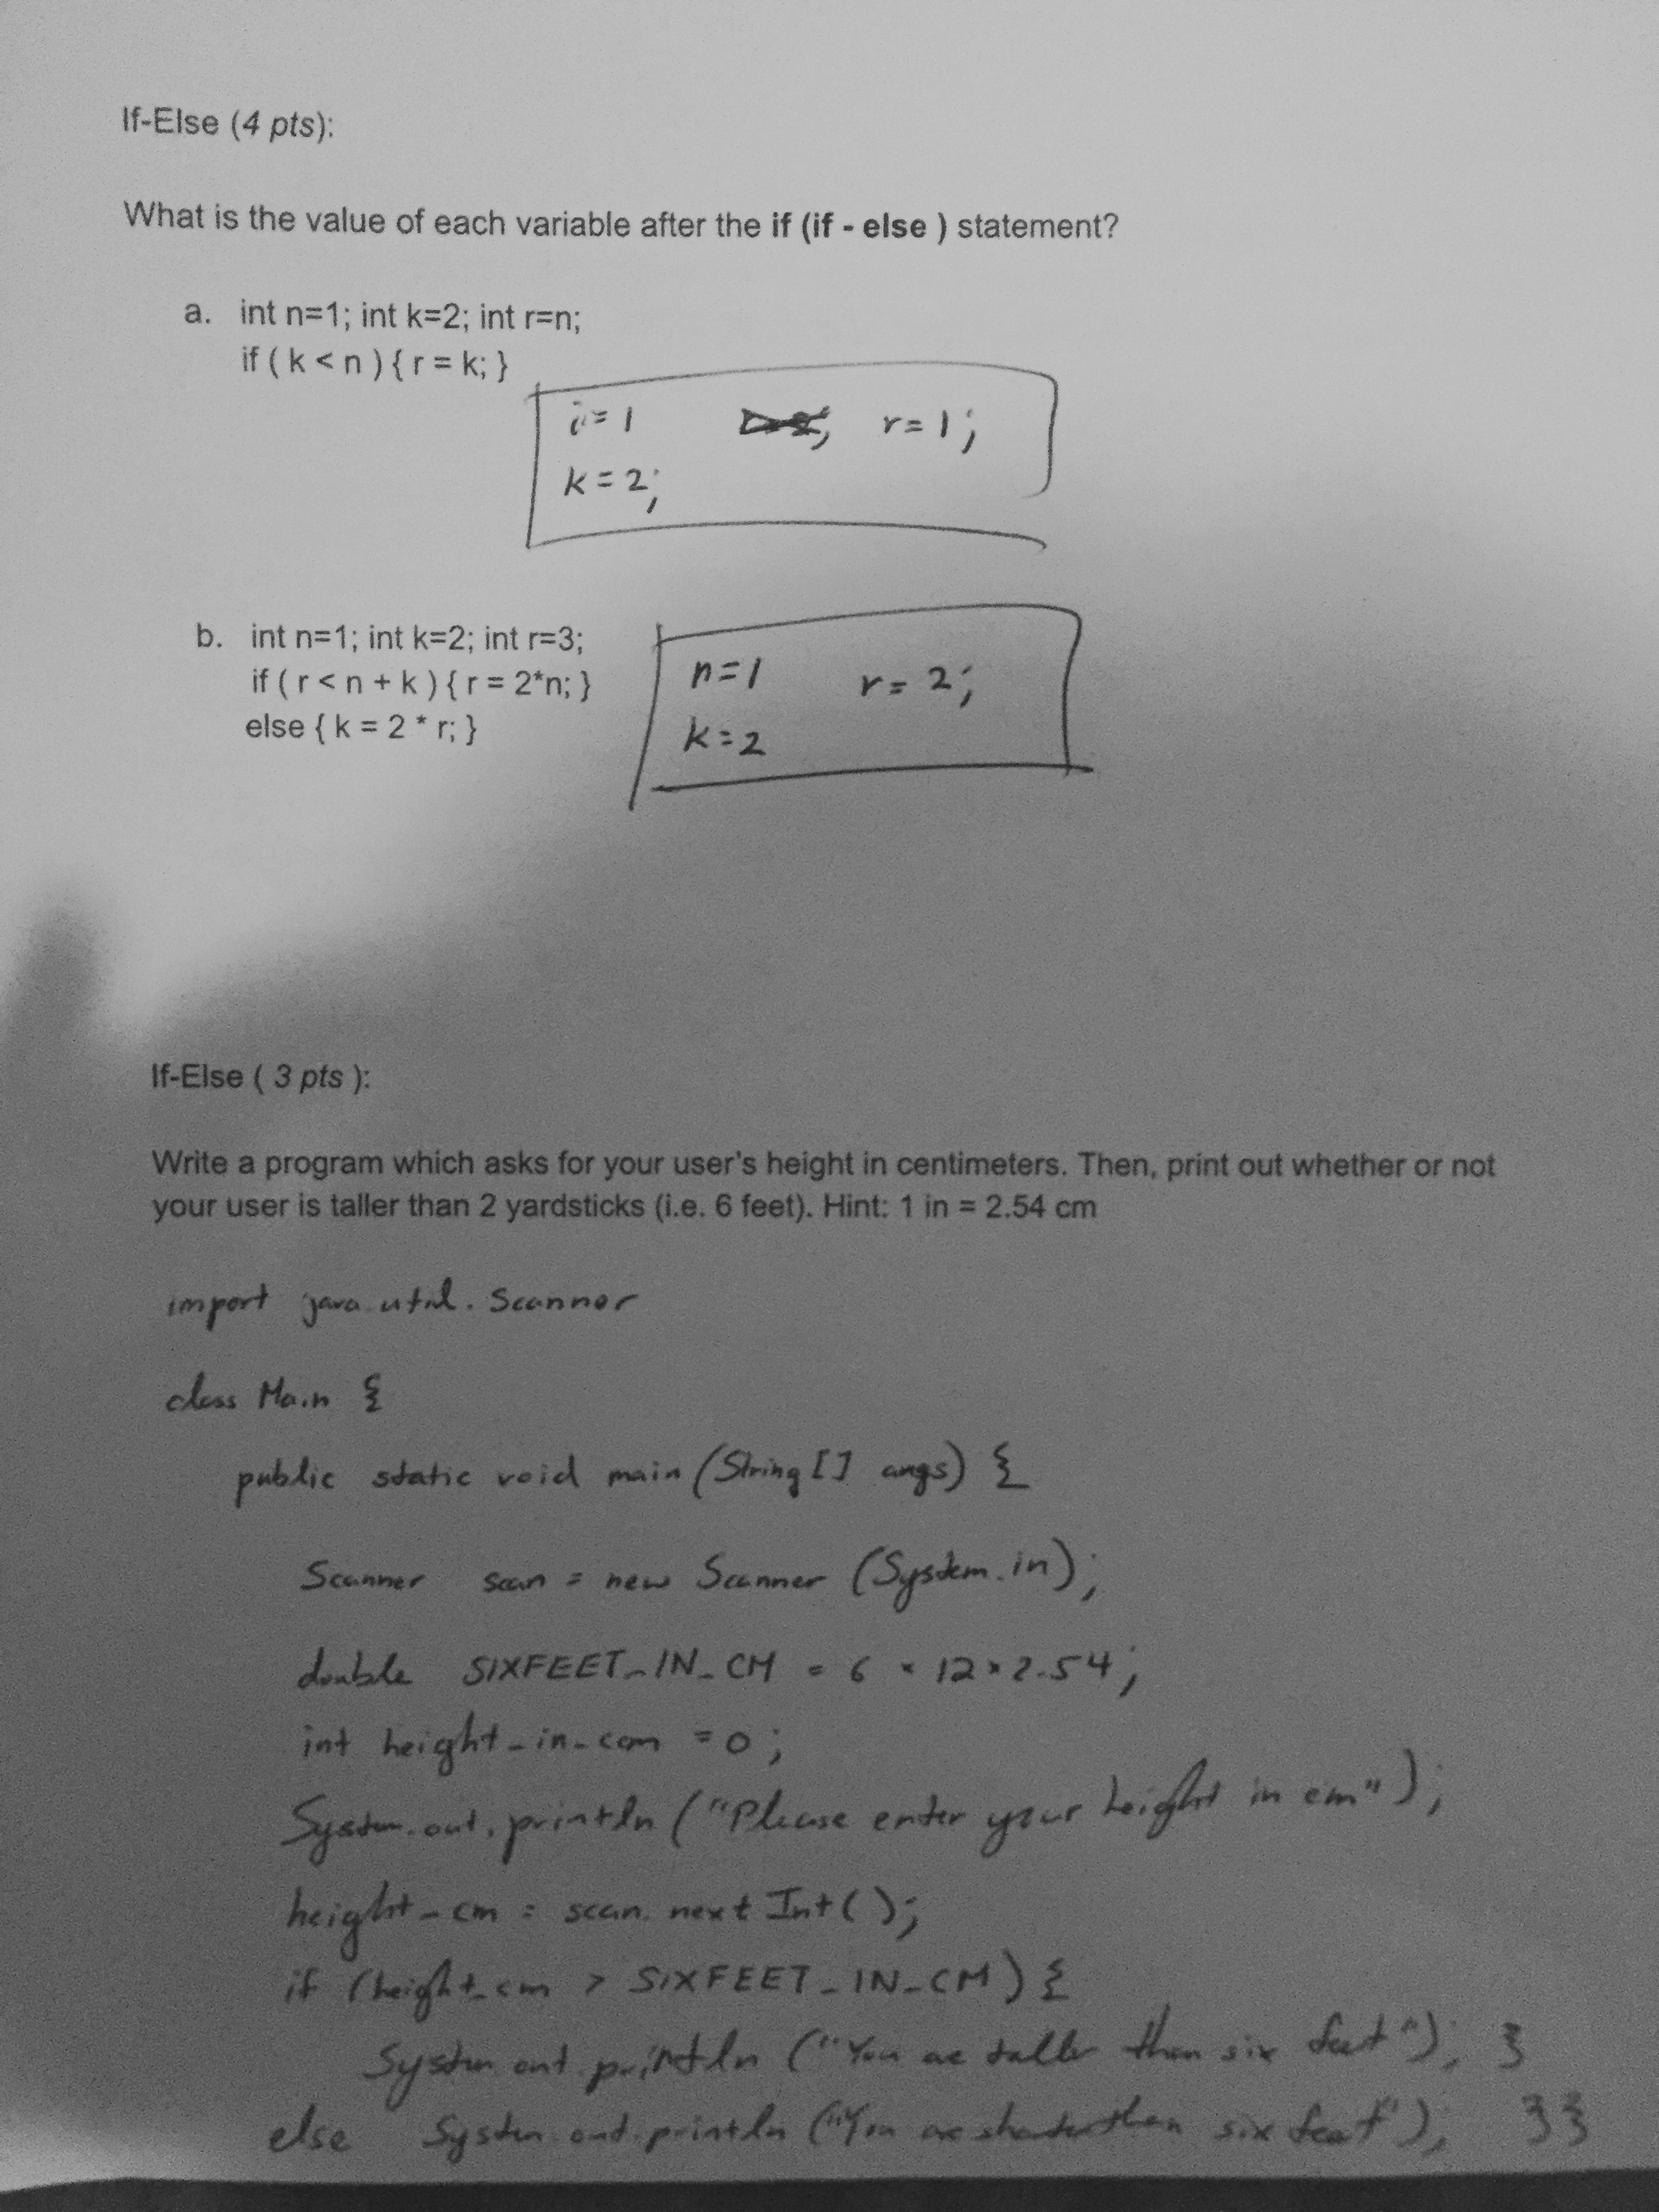 If-Else (4 pts):
What is the value of each variable after the if (if - else ) statement?
a. int n=1; int k=2; int r=n;
if ( k < n ) { r = k; }
i=1 r=1;
k=2;
b. int n=1; int k=2; int r=3;
if ( r < n + k ) { r = 2*n; }
else { k = 2 * r; }
n=1 r=2;
k=2
If-Else ( 3 pts ):
Write a program which asks for your user's height in centimeters. Then, print out whether or not
your user is taller than 2 yardsticks (i.e. 6 feet). Hint: 1 in = 2.54 cm
import java.util.Scanner
class Main {
public static void main (String [] args) {
Scanner scan = new Scanner (System.in);
double SIXFEET_IN_CM = 6 * 12 * 2.54;
int height_in_cm = 0;
System.out.println ("Please enter your height in cm");
height_cm = scan.nextInt();
if (height_cm > SIXFEET_IN_CM) {
System.out.println ("You are taller than six feet"); }
else System.out.println ("You are shorter than six feet"); }}